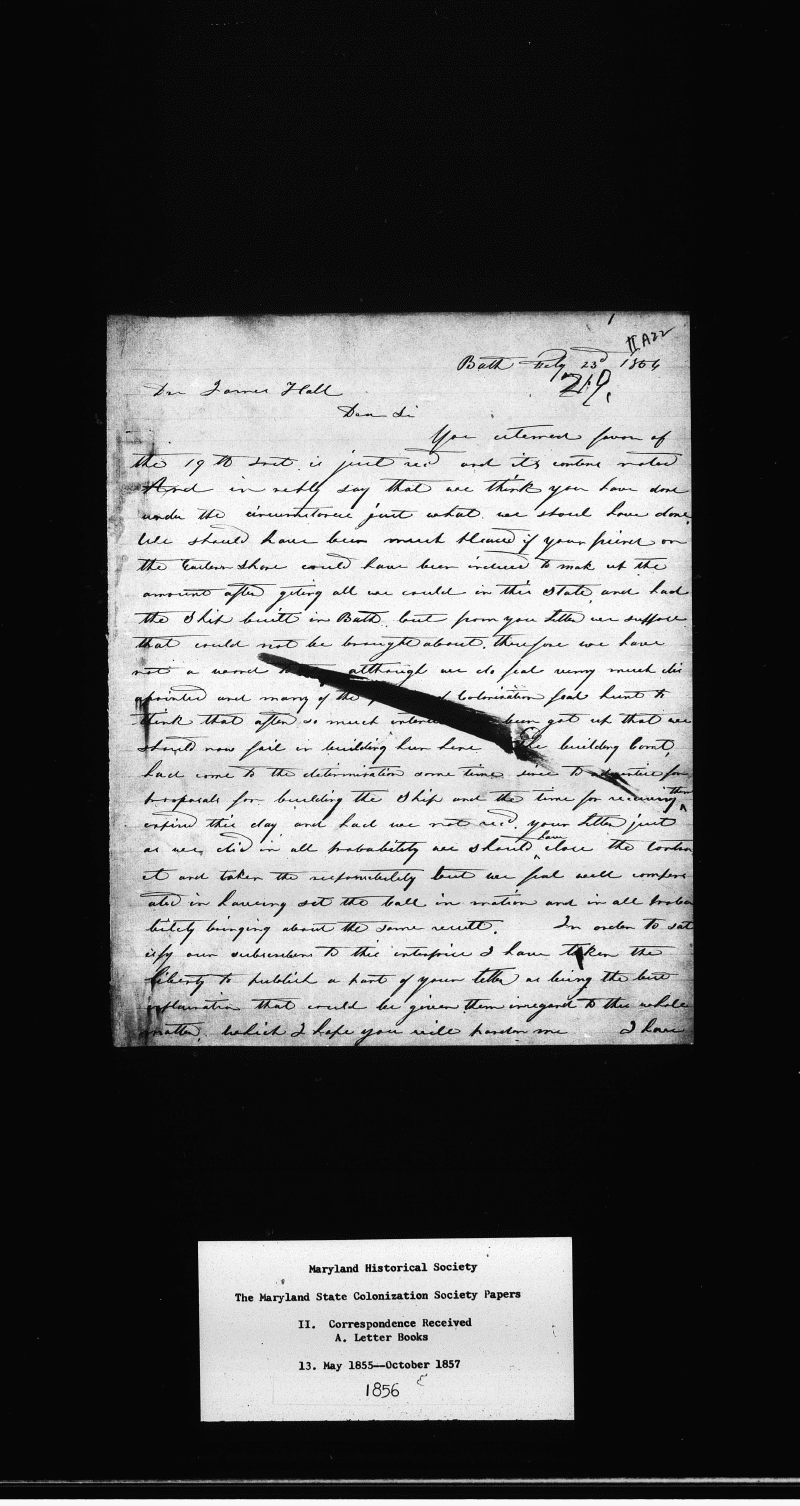 II A22
Bath Feby 23d 1856
219.
Dr James Hall
Dear Si
You esteemed favor of
the 19th Inst. is just recd and its contens noted
And in reply say that we think you have done
under the circumstances just what we shoul have done
We should have been much pleased if your friend on
the Eastern Shore could have been induced to mak up the
amount after geting all we could in this State and had
the Ship built in Bath, but from you letter we suppose
that could not be brought about. therefore we have
not a word although we do feal verry much dis
apointed and many of the Colonization feal hurt to
think that after so much been got up that we
should now fail in building hur here building Comt,
had come to the determination some time since to advertise for
proposals for building the Ship and the time for receiving them
expired this day and had we not recd. your letter just
as we did in all probability we should have close the Contra
ct and taken the responsibility but we feal well compens
ated in haveing set the ball in motion and in all proba
bility bringing about the same result. In order to sat
isfy our subscribers to this enterprise I have taken the
liberty to publish a part of your letter as being the best
explanation that could be given them in regard to this whole
matter, which I hope you will pardon me I have
Maryland Historical Society
The Maryland State Colonization Society Papers
II. Correspondence Received
A. Letter Books
13. May 1855--October 1857
1856